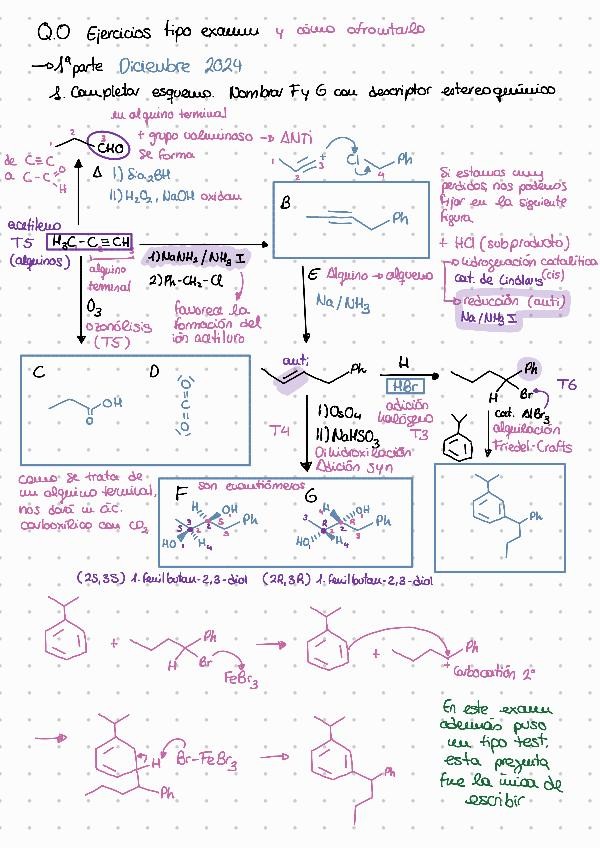 Q.O Ejercicios tipo examen y cómo afrontarlo
→ 1ª parte Diciembre 2024
1. Completar esquema. Nombrar F y G con descriptor estereoquímico
en alquino terminal
+ grupo voluminoso → ANTi
se forma
1 2 3 CHO
de C≡C
a C-C O H
Δ i) Sia₂BH
ii) H₂O₂, NaOH oxidan
1 2 3 + Cl⁻ 4 Ph
B
Ph
Si estamos muy
perdidos, nos podemos
fijar en la siguiente
figura.
acetileno
T5
(alquinos)
H₃C-C≡CH
alquino
terminal
1) NaNH₂/NH₃ l
2) Ph-CH₂-Cl
favorece la
formación del
ión acetiluro
O₃
ozonólisis
(T5)
+ HCl (subproducto)
hidrogenación catalítica
cat. de Lindlars (cis)
reducción (anti)
Na/NH₃ l
E Alquino → alqueno
Na/NH₃
C
OH
O
D
O
C
O
anti
Ph
H
HBr
adición
halógeno
T3
Ph
H
Br
T6
cat. AlBr₃
alquilación
Friedel-Crafts
T4
i) OsO₄
ii) NaHSO₃
Dihidroxilación
Adición syn
como se trata de
un alquino terminal,
nos dará un ác.
carboxílico con CO₂
son enantiómeros
F
H OH
Ph
HO H
G
H OH
Ph
HO H
Ph
(2S,3S) 1-fenilbutan-2,3-diol (2R,3R) 1-fenilbutan-2,3-diol
+
Ph
H Br
FeBr₃
+
Ph
+
Carbocatión 2º
H Br-FeBr₃
Ph
Ph
En este examen
además puso
un tipo test,
esta pregunta
fue la única de
escribir